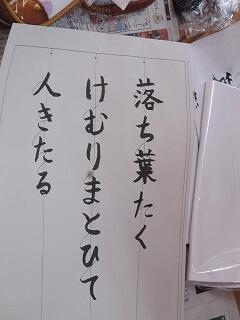 落ち葉たく
けむりまとひて
人きたる